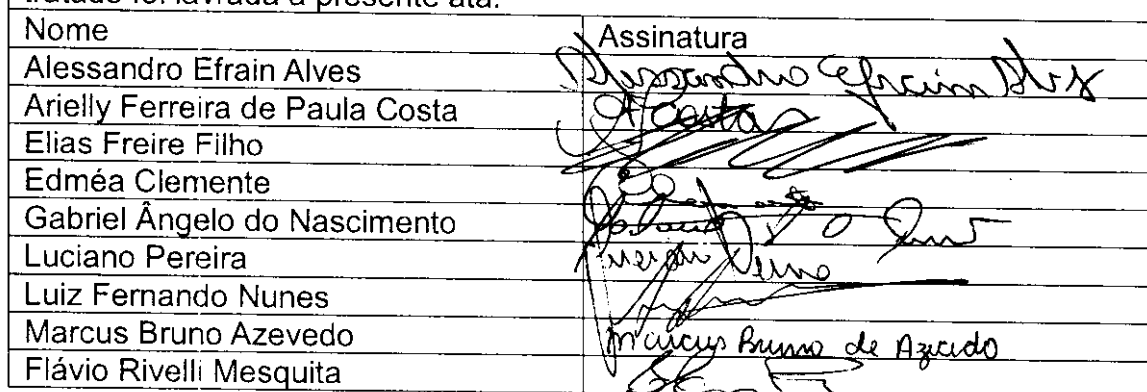 tratado foi lavrada a presente ata.
Nome Assinatura
Alessandro Efrain Alves Alessandro Efraim Alves
Arielly Ferreira de Paula Costa ACosta
Elias Freire Filho
Edméa Clemente
Gabriel Ângelo do Nascimento
Luciano Pereira Luciano
Luiz Fernando Nunes
Marcus Bruno Azevedo Marcus Bruno de Azevedo
Flávio Rivelli Mesquita